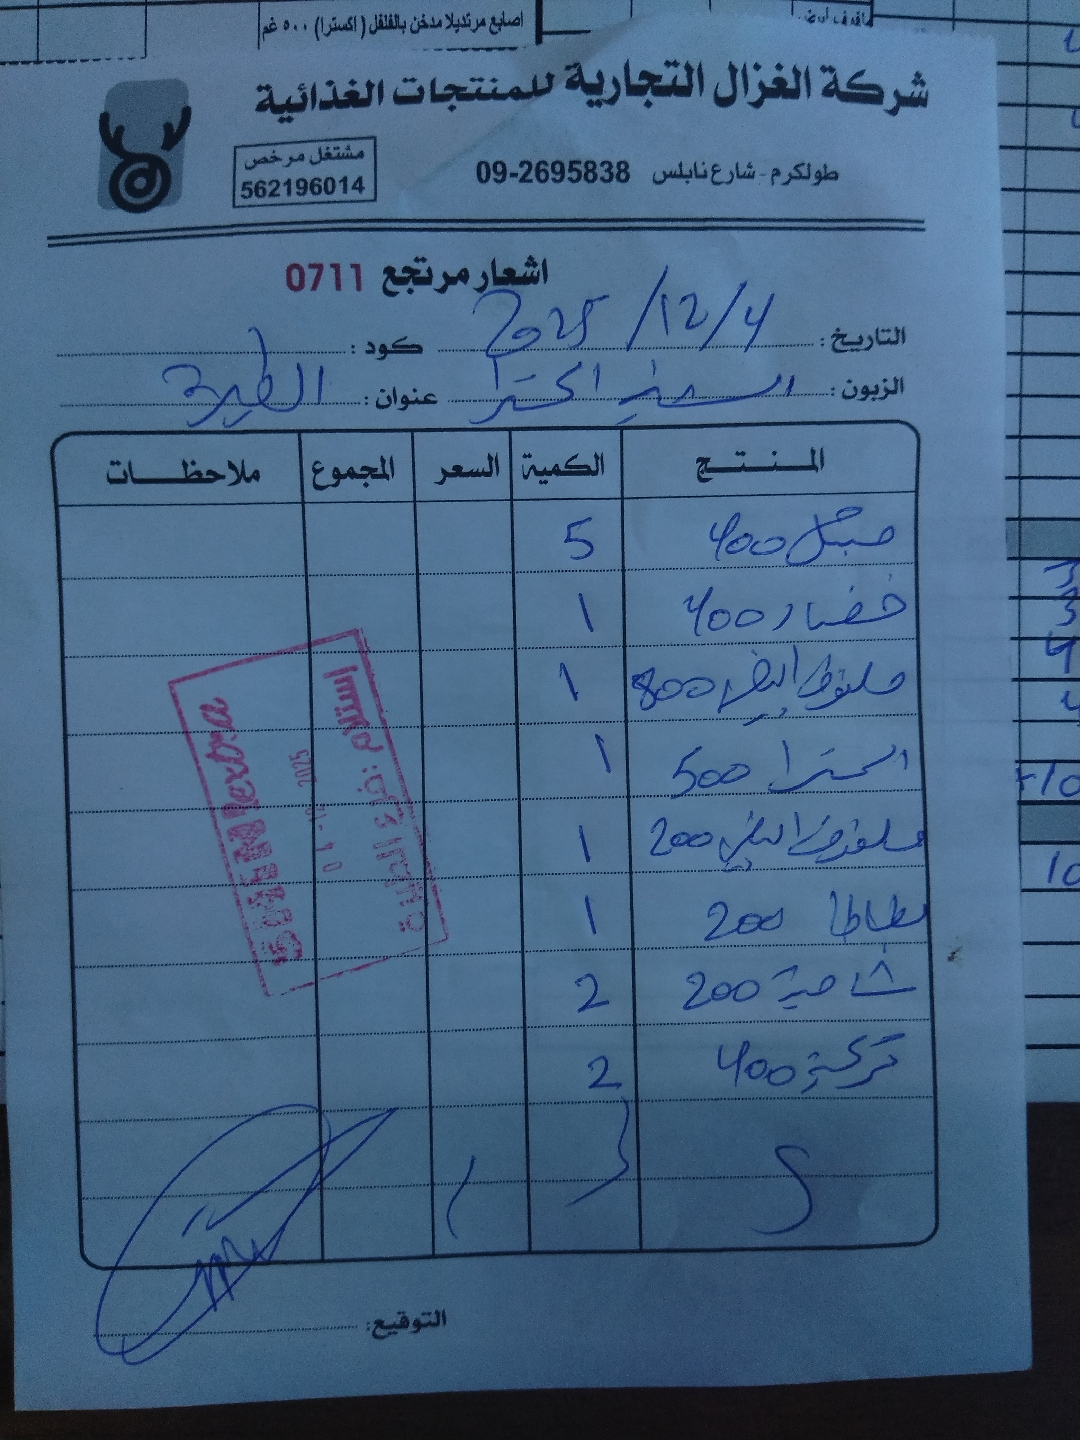 اصابع مرتديلا مدخن بالفلفل (اكسترا) ٥٠٠ غم
شركة الغزال التجارية للمنتجات الغذائية
مشتغل مرخص
562196014
طولكرم - شارع نابلس 09-2695838
اشعار مرتجع 0711
التاريخ: 2025/12/4 كود:
الزبون: عنوان: الطيرة
المنتج الكمية السعر المجموع ملاحظات
400 5
خضار 400 1
ملفوف ابيض 800 1
اكسترا 500 1
ملفوف ابيض 200 1
بطاطا 200 1
شامية 200 2
تركية 400 2
استلام
2025
التوقيع: